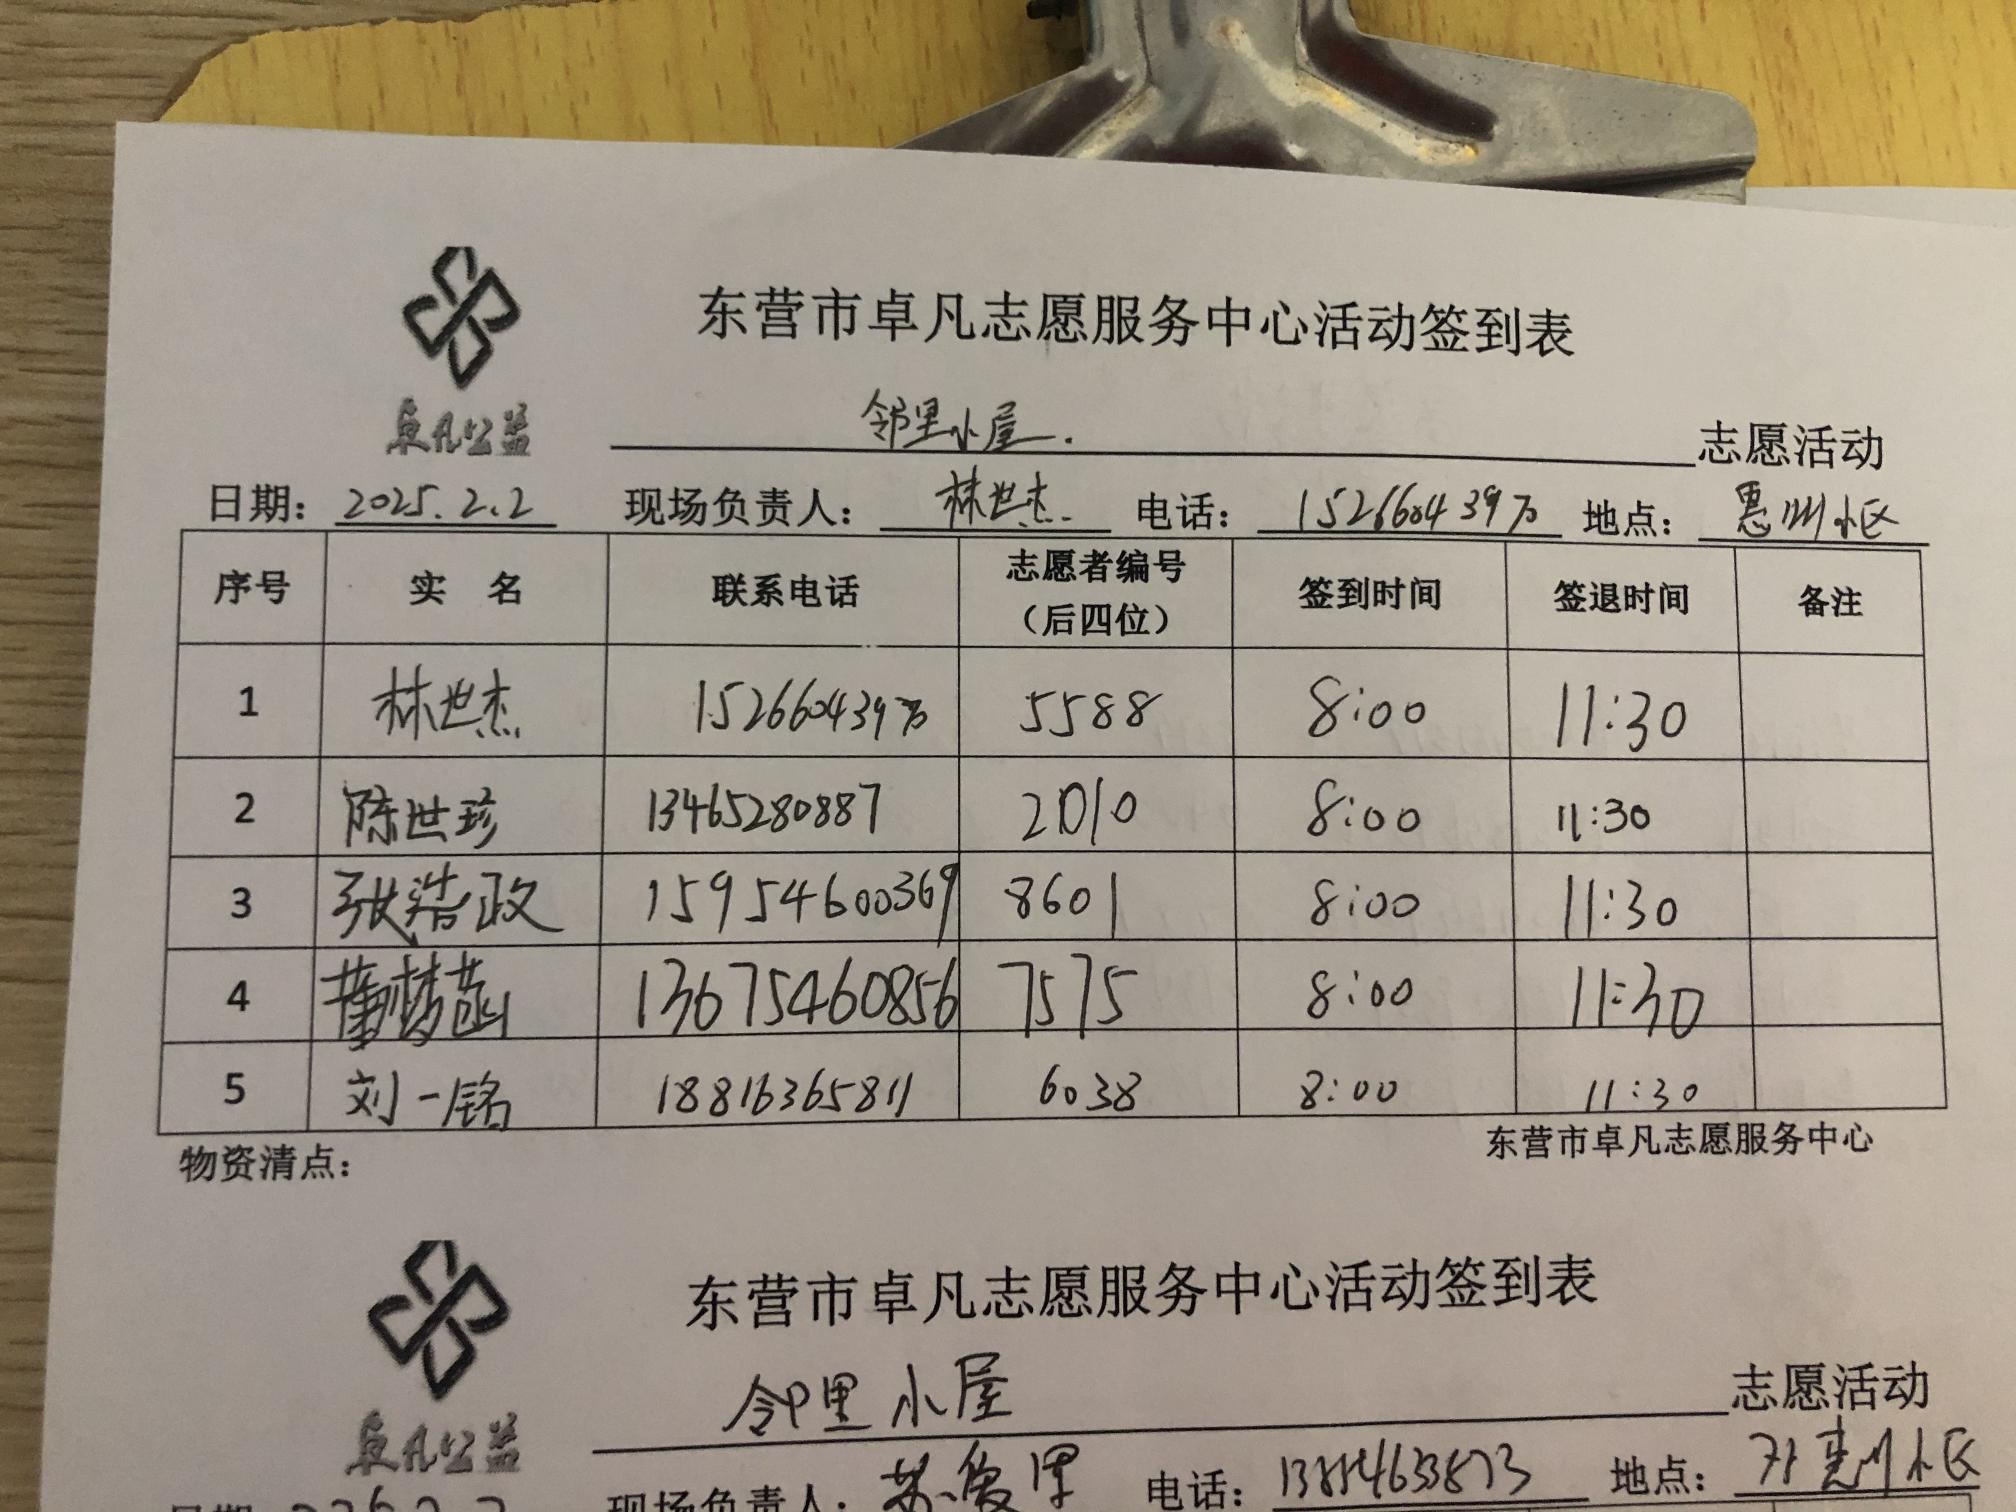 东营市卓凡志愿服务中心活动签到表
卓凡公益
邻里小屋. 志愿活动
日期: 2025.2.2 现场负责人: 林世杰 电话: 15266043970 地点: 惠州小区
序号 实 名 联系电话 志愿者编号（后四位） 签到时间 签退时间 备注
1 林世杰 15266043970 5588 8:00 11:30
2 陈世珍 13465280887 2010 8:00 11:30
3 张浩政 15954600369 8601 8:00 11:30
4 董梦菡 13675460856 7575 8:00 11:30
5 刘一铭 18816365811 6038 8:00 11:30
物资清点: 东营市卓凡志愿服务中心
东营市卓凡志愿服务中心活动签到表
卓凡公益
邻里小屋 志愿活动
日期: 现场负责人: 电话: 地点: 小区